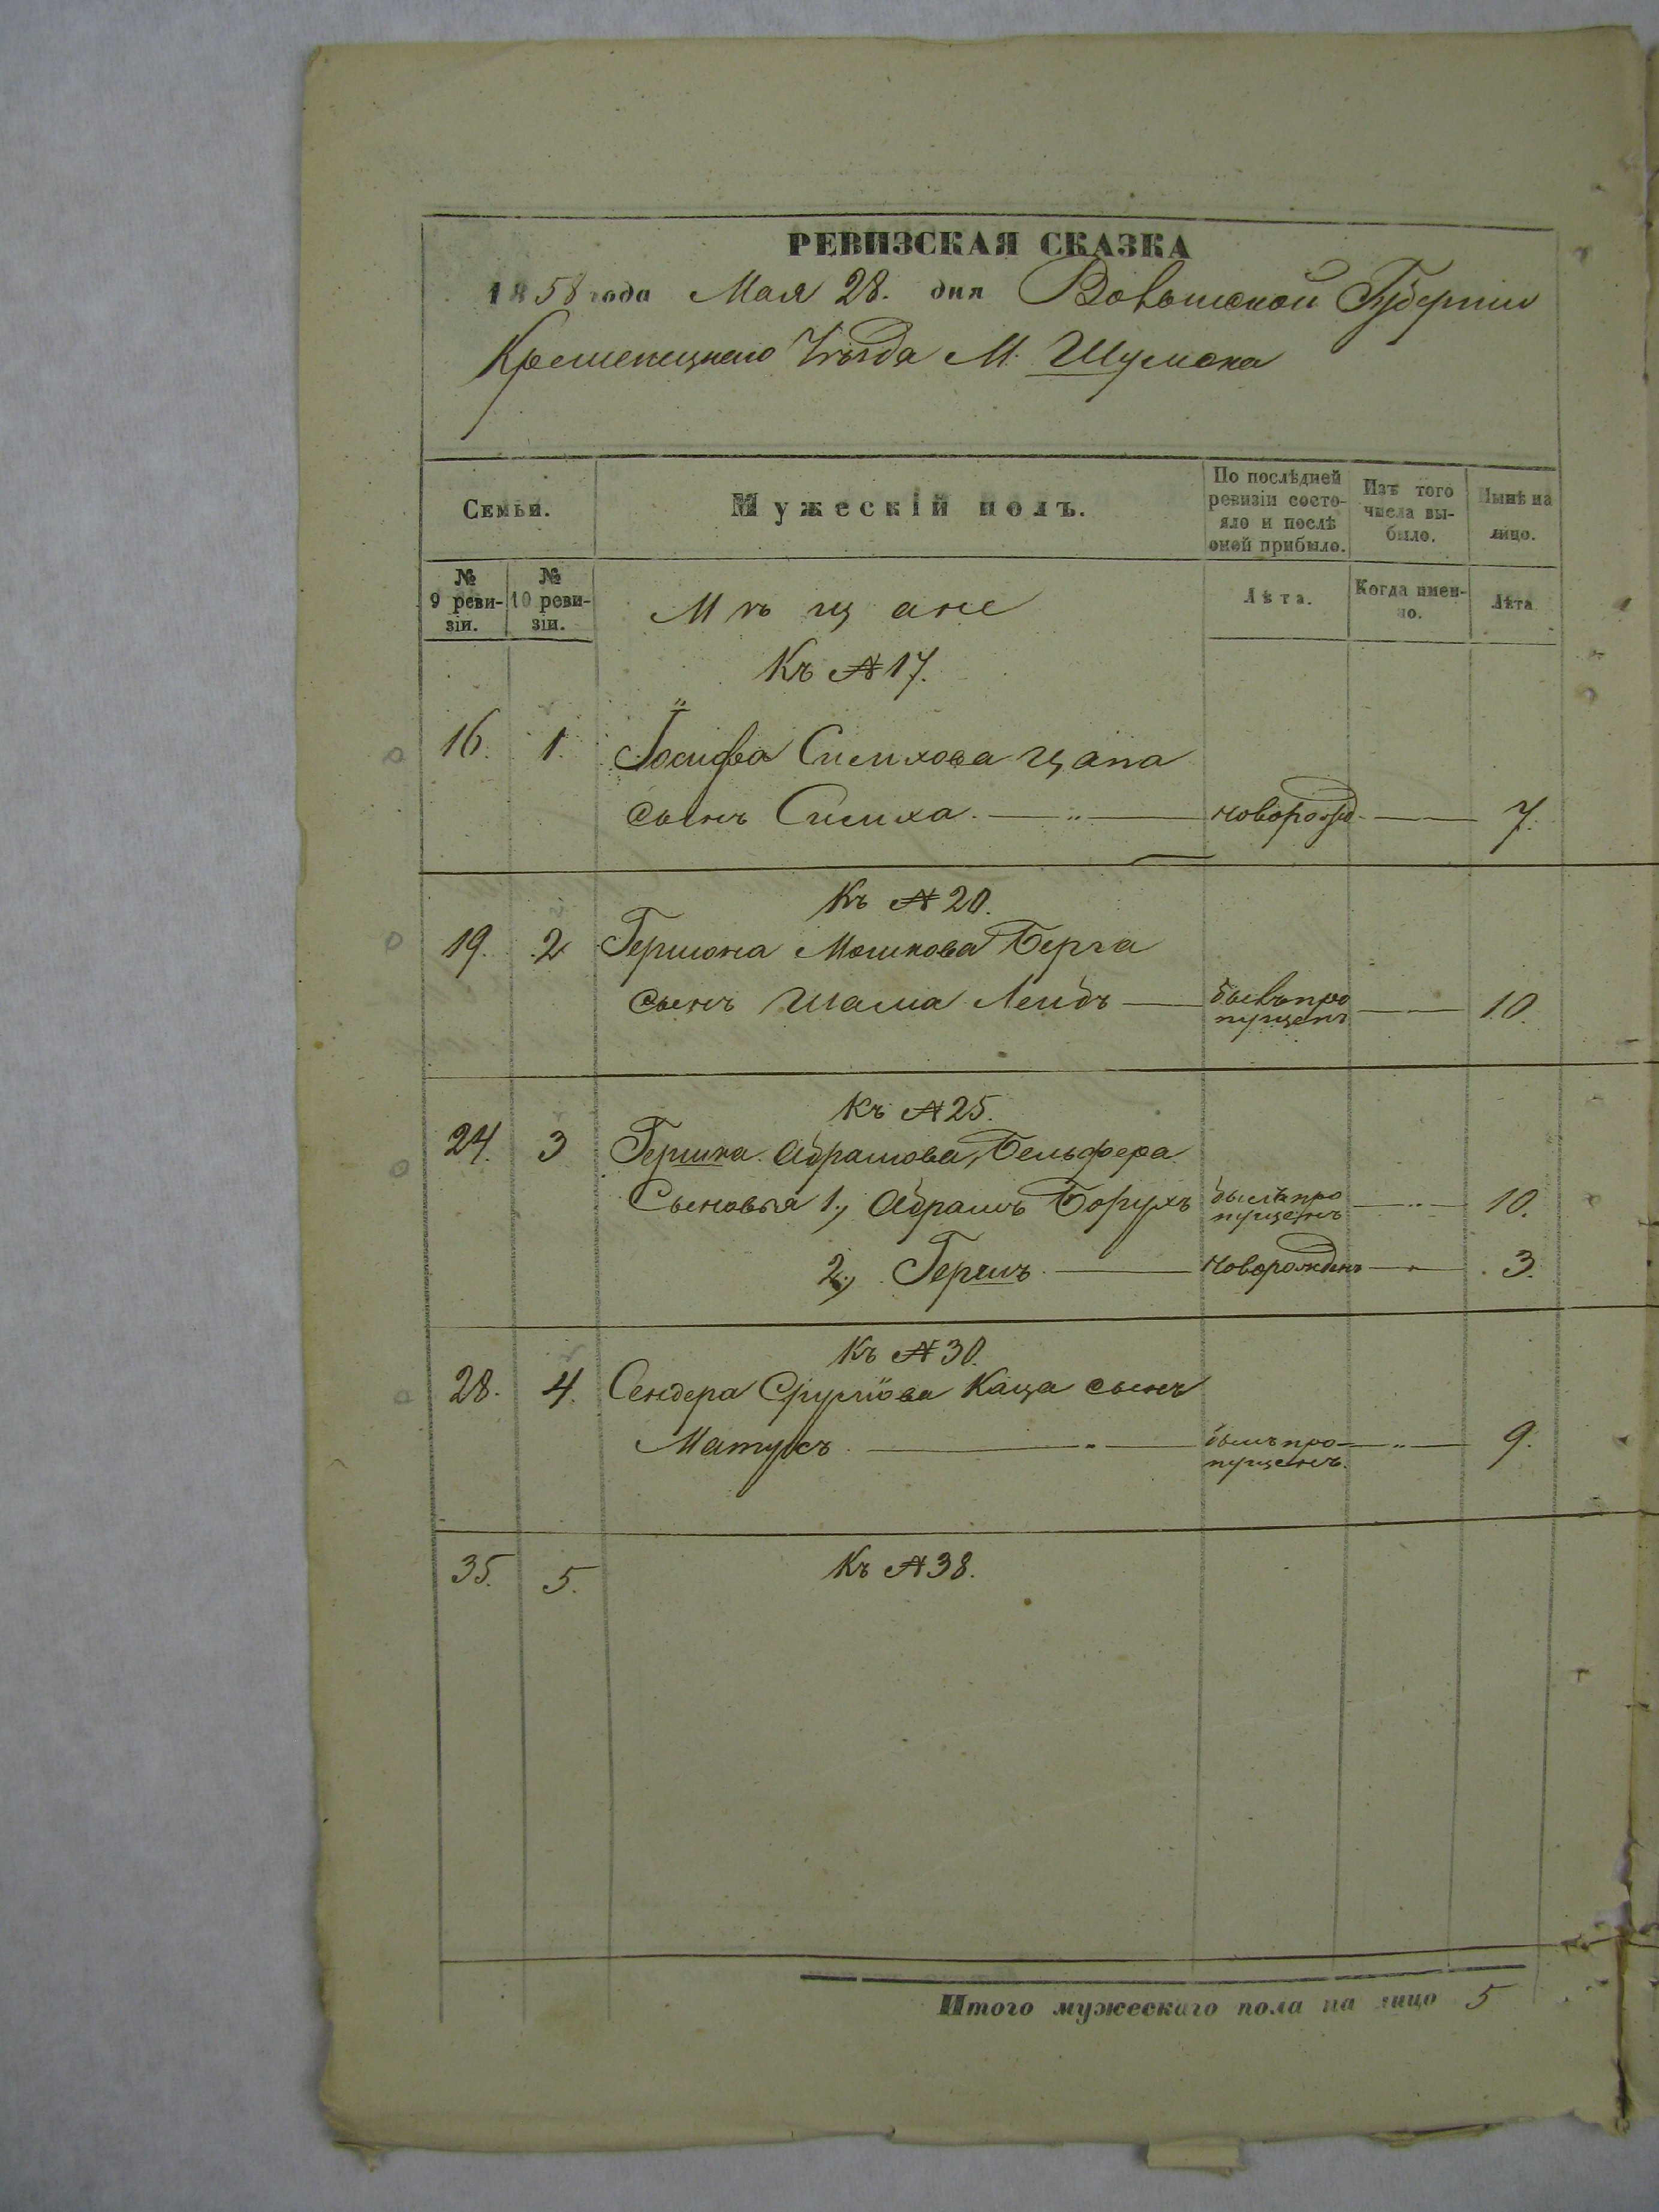 РЕВИЗСКАЯ СКАЗКА
1858 года Мая 28. дня Волынской Губернiи
Кременецкаго Уѣзда М. Шумска
Семьи.
Мужескiй полъ.
По послѣдней ревизiи состо-
яло и послѣ оной прибыло.
Изъ того числа вы-
было.
Нынѣ на лицо.
№ 9 реви-
зiи.
№ 10 реви-
зiи.
Мѣщане
Лѣта.
Когда имен-
но.
Лѣта
Къ № 17.
16. 1. Іосифа Симхова Цапа
сынъ Симха. — „ — новорожд. — 7.
Къ № 20.
19. 2 Гершона Мошкова Берга
сынъ Шама Лейбъ — былъ про
пущенъ — 10.
Къ № 25.
24. 3 Гершка Абрамова Бельфера
Сыновья 1., Абрамъ Борухъ былъ про
пущенъ — „ — 10.
2., Гершъ — новорожденъ — 3.
Къ № 30.
28. 4. Сендера Срулiова Каца сынъ
Матусъ — „ — былъ про-
пущенъ. — „ — 9.
35. 5. Къ № 38.
Итого мужескаго пола на лицо 5